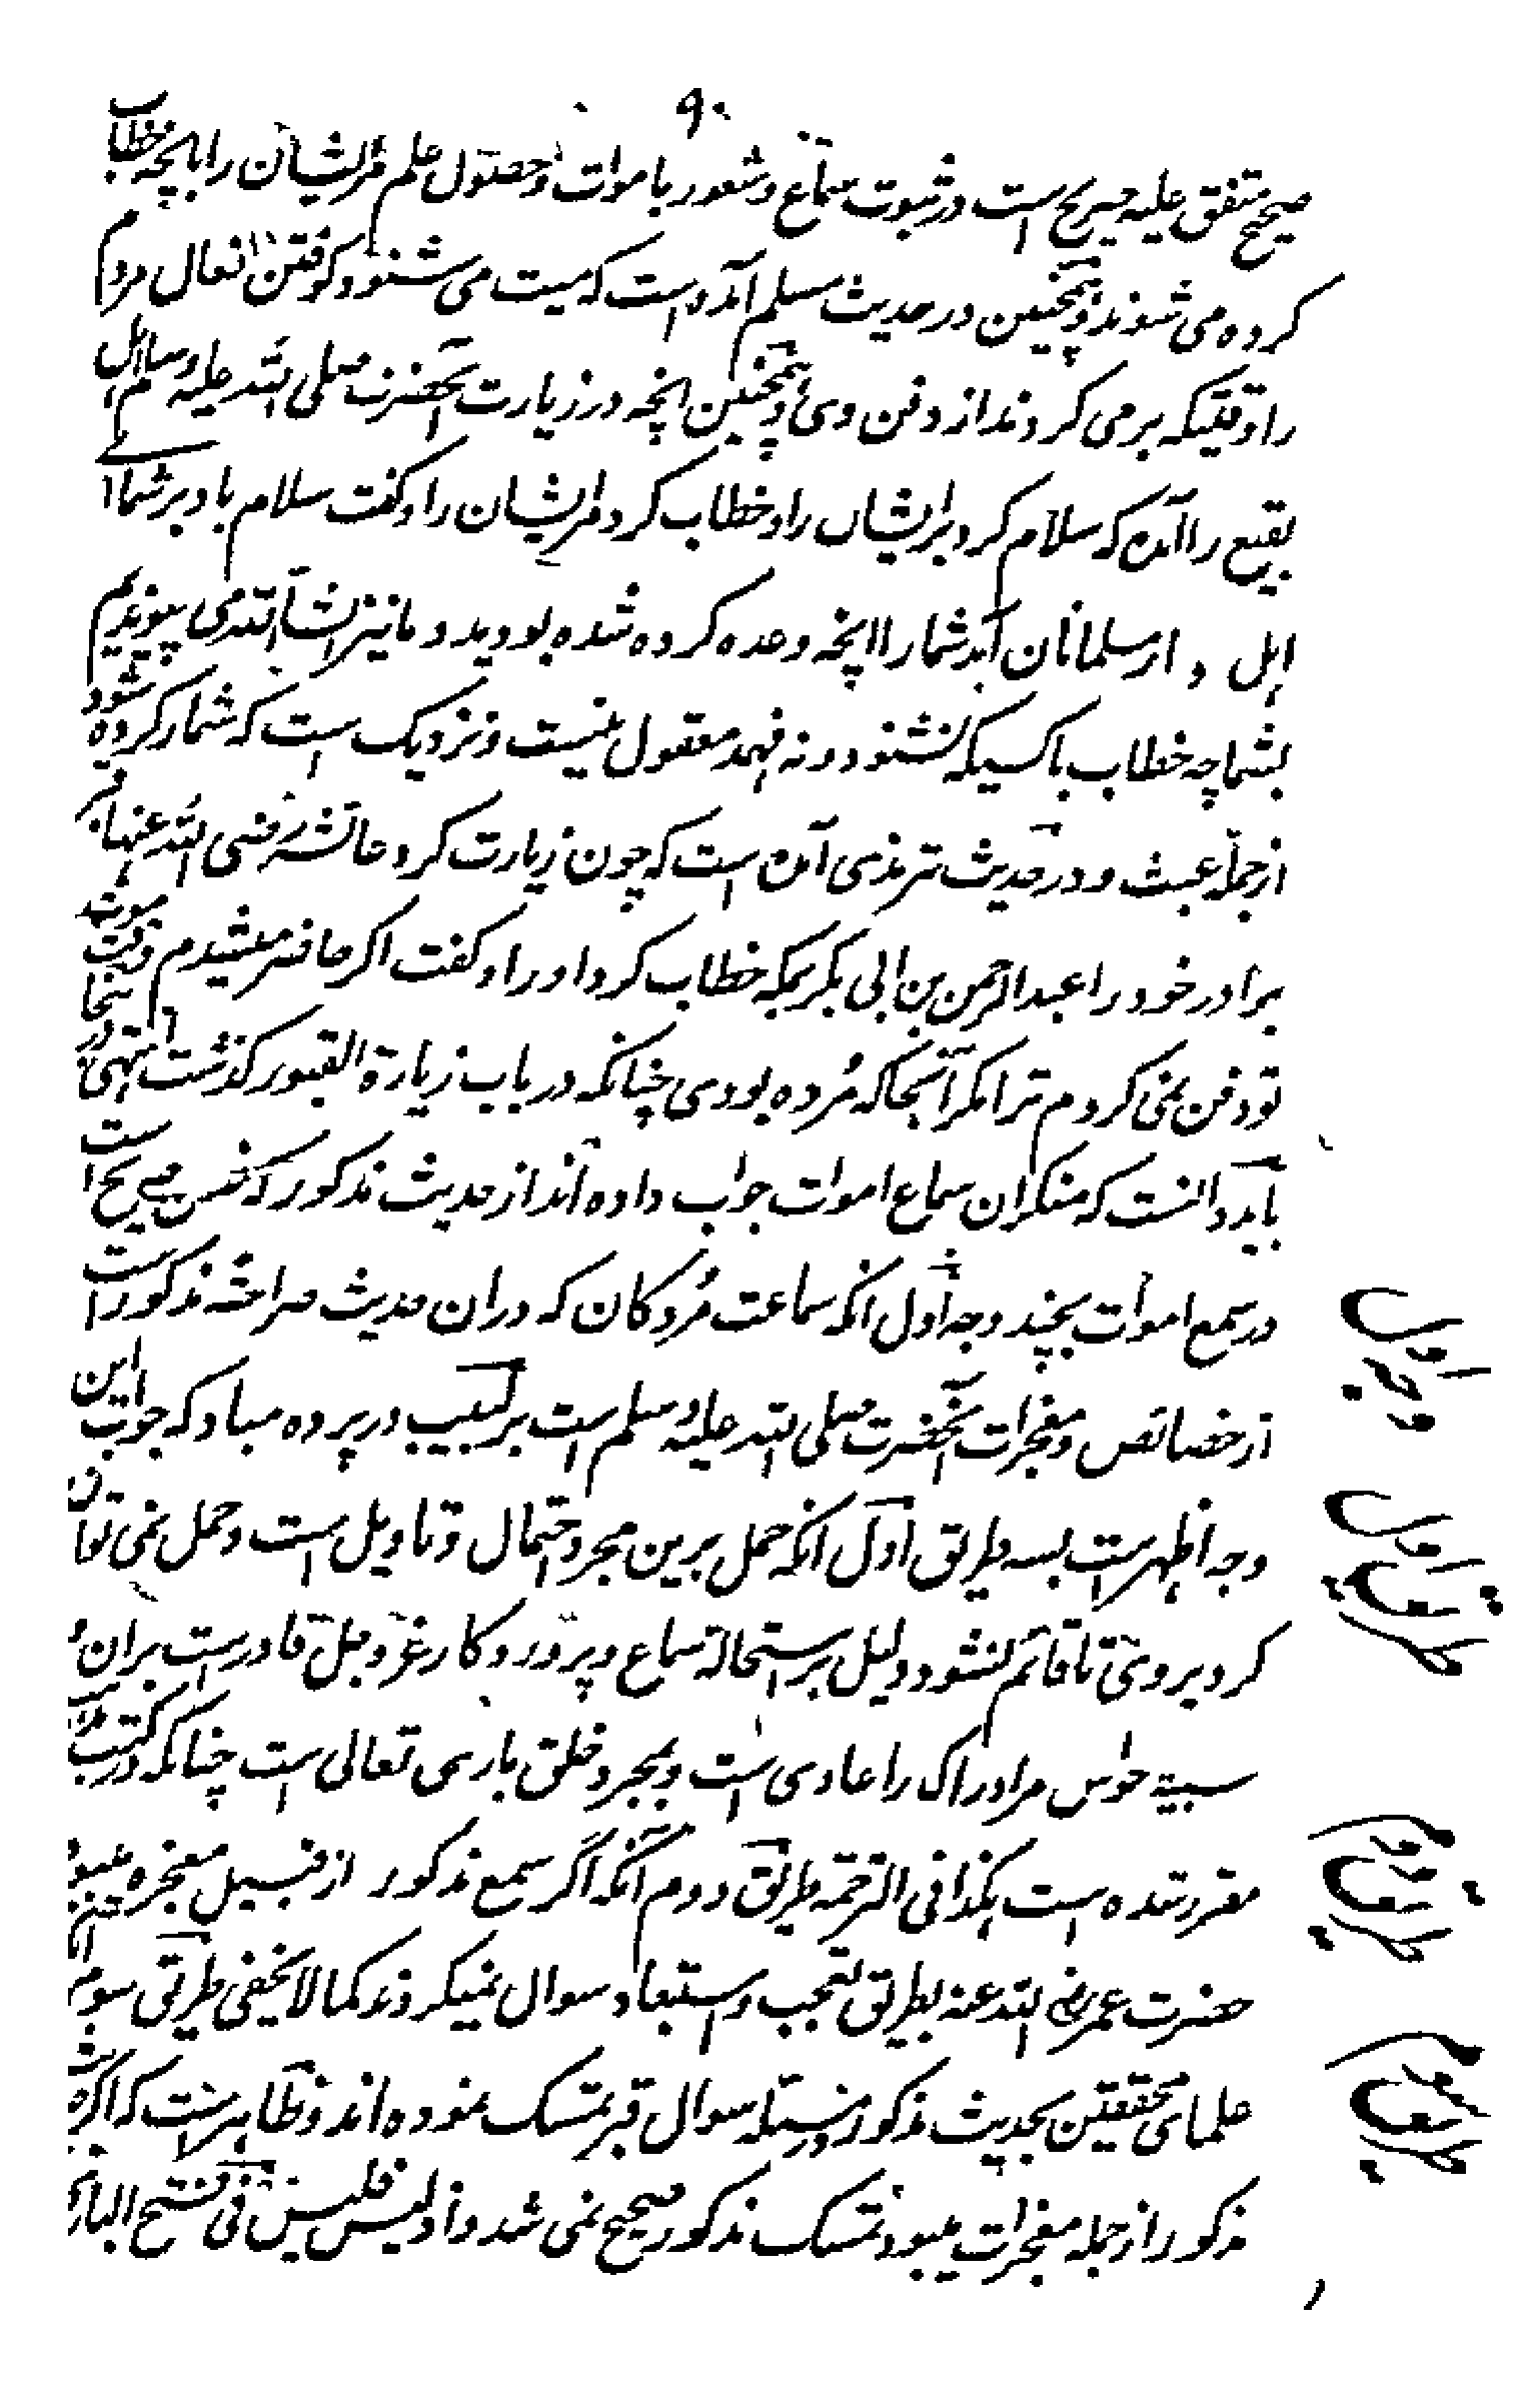 ۹۰
صحیح متفق علیه صریح است در ثبوت سماع و شعور باموات و حصول علم مرایشان را بانچه خطاب
کرده می شوند و همچنین در حدیث مسلم آمده است که میت می شنود کوفتن نعال مردم
را وقتیکه برمی گردند از دفن وی و همچنین انچه در زیارت آنحضرت صلی الله علیه وسلم اهل
بقیع را آمده که سلام کرد برایشاں را و خطاب کرد مرایشان را و گفت سلام باد بر شما اے
اہل و از مسلمانان آمد شما را انچه وعده کرده شده بودید و ما نیز انشاء الله می پیوندیم
بشما چه خطاب با کسیکه نشنود و نه فهمد معقول نیست و نزدیک است که شمار کرده شود
از جمله عبث و در حدیث ترمذی آمده است که چون زیارت کرد عائشه رضی الله عنها قبر
برادر خود را عبد الرحمن بن ابی بکر بمکه خطاب کرد او را و گفت اگر حاضر میشدم وقت موت
تو دفن نمی کردم ترا مگر آنجا که مُرده بودی چنانکه در باب زیارة القبور گذشت انتهی در اینجا
باید دانست که منکران سماع اموات جواب داده اند از حدیث مذکور که نص صریح است
در سمع اموات بچند وجه اول انکه سماعت مُردگان که دران حدیث صراحةً مذکور است
از خصائص و معجزات آنحضرت صلی الله علیه وسلم است بر لبیب در پرده مباد که جواب این
وجه اظهر است بسه طریق اول انکه حمل برین مجرد احتمال و تاویل است و حمل نمی توان
کرد بروی تا قائم نشود دلیل بر استحالة سماع و پروردگار عز و جل قادر است بران و
سببیة حواس مر ادراک را عادی است و بمجرد خلق باری تعالی است چنانکه در کتب مذهب
مقرر شده است هکذا فی الترجمة طریق دوم آنکه اگر سمع مذکور از قبیل معجزه میبود
حضرت عمر رضی الله عنه بطریق تعجب و استبعاد سوال نمیکردند کما لا یخفی طریق سوم
علمای محققین بحدیث مذکور در مسئله سوال قبر تمسک نموده اند و ظاهر است که اگر
مذکور از جمله معجزات میبود تمسک مذکور صحیح نمی شد و اذ لیس فلیس فی فتح الباری
وجه اول
طریق اول
طریق دوم
طریق سوم